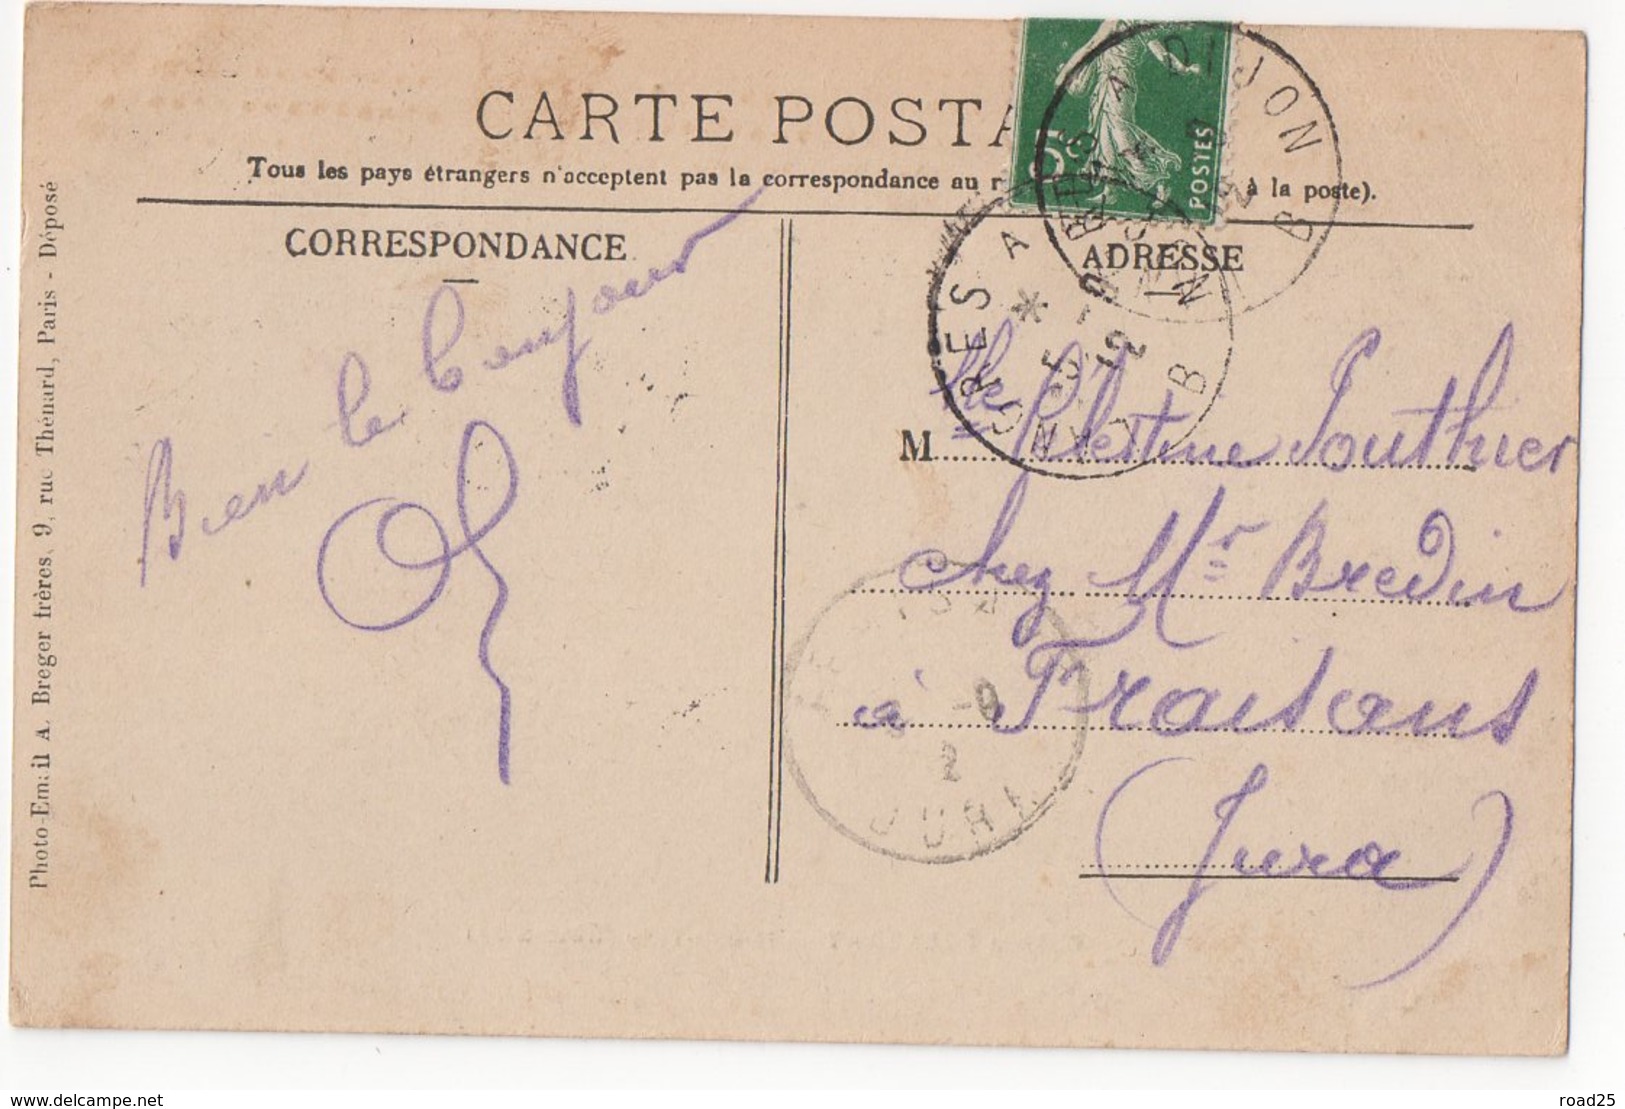 CARTE POSTA
Tous les pays étrangers n'acceptent pas la correspondance au à la poste).
CORRESPONDANCE
ADRESSE
Bien le bonjour
M lle Célestine Pouthier
chez Mr Bredin
à Fraisans
(Jura)
POSTES
GRES A DIJON B
GRES A B
JURA
Photo-Email A. Breger frères, 9, rue Thénard, Paris - Déposé
www.delcampe.net
road25